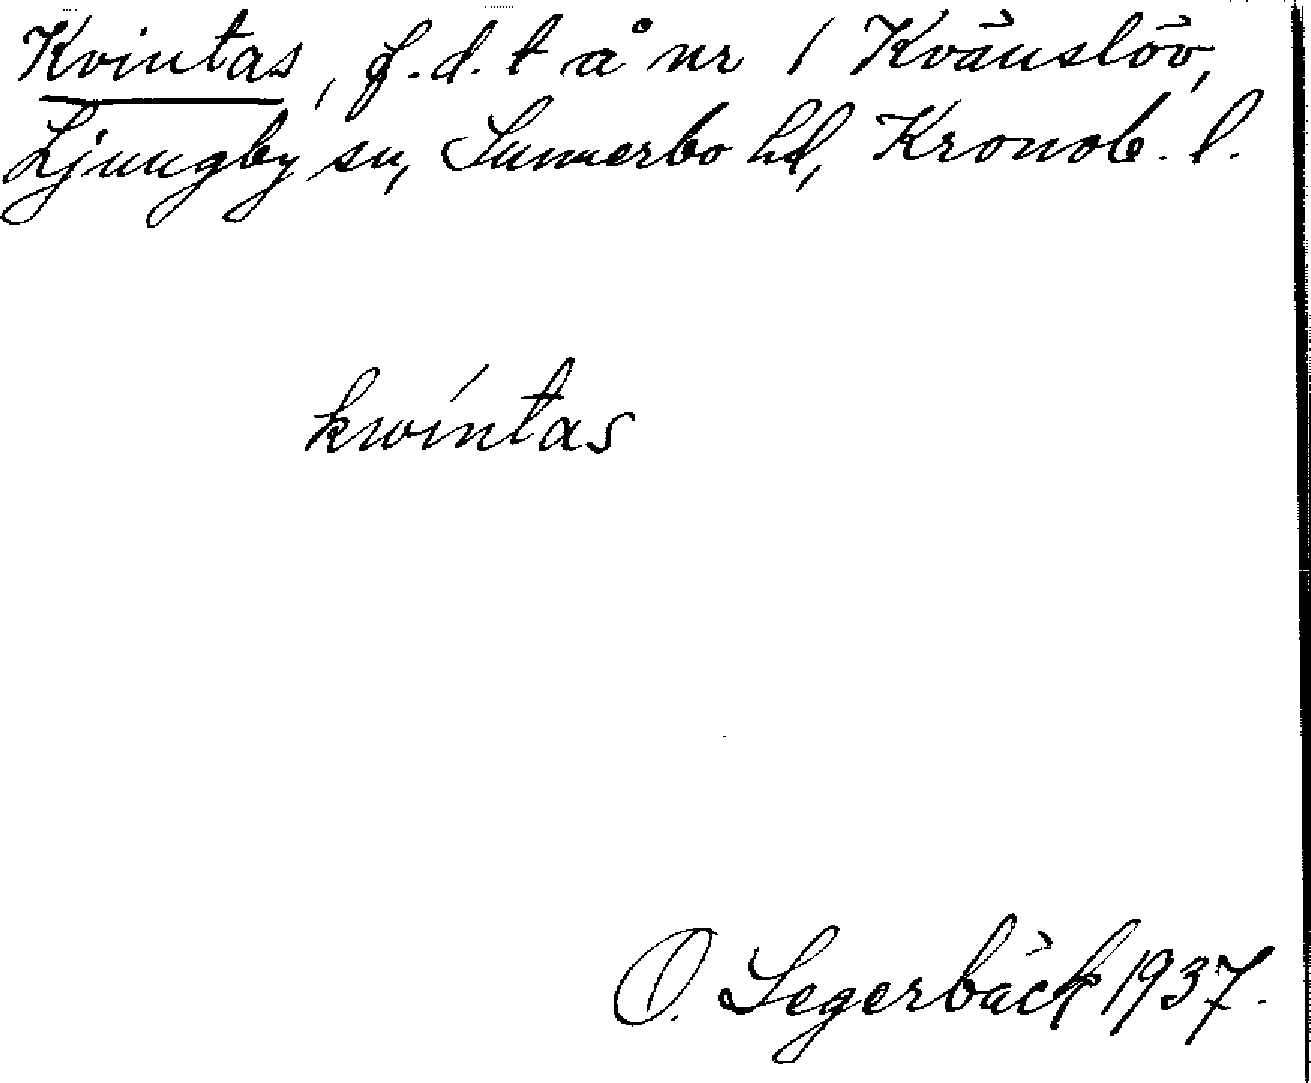 Kvintas, f.d. t å nr 1 Kvänslöv,
Ljungby sn, Sunnerbo hd, Kronob. l.
kwíntas
O. Segerbäck 1937.